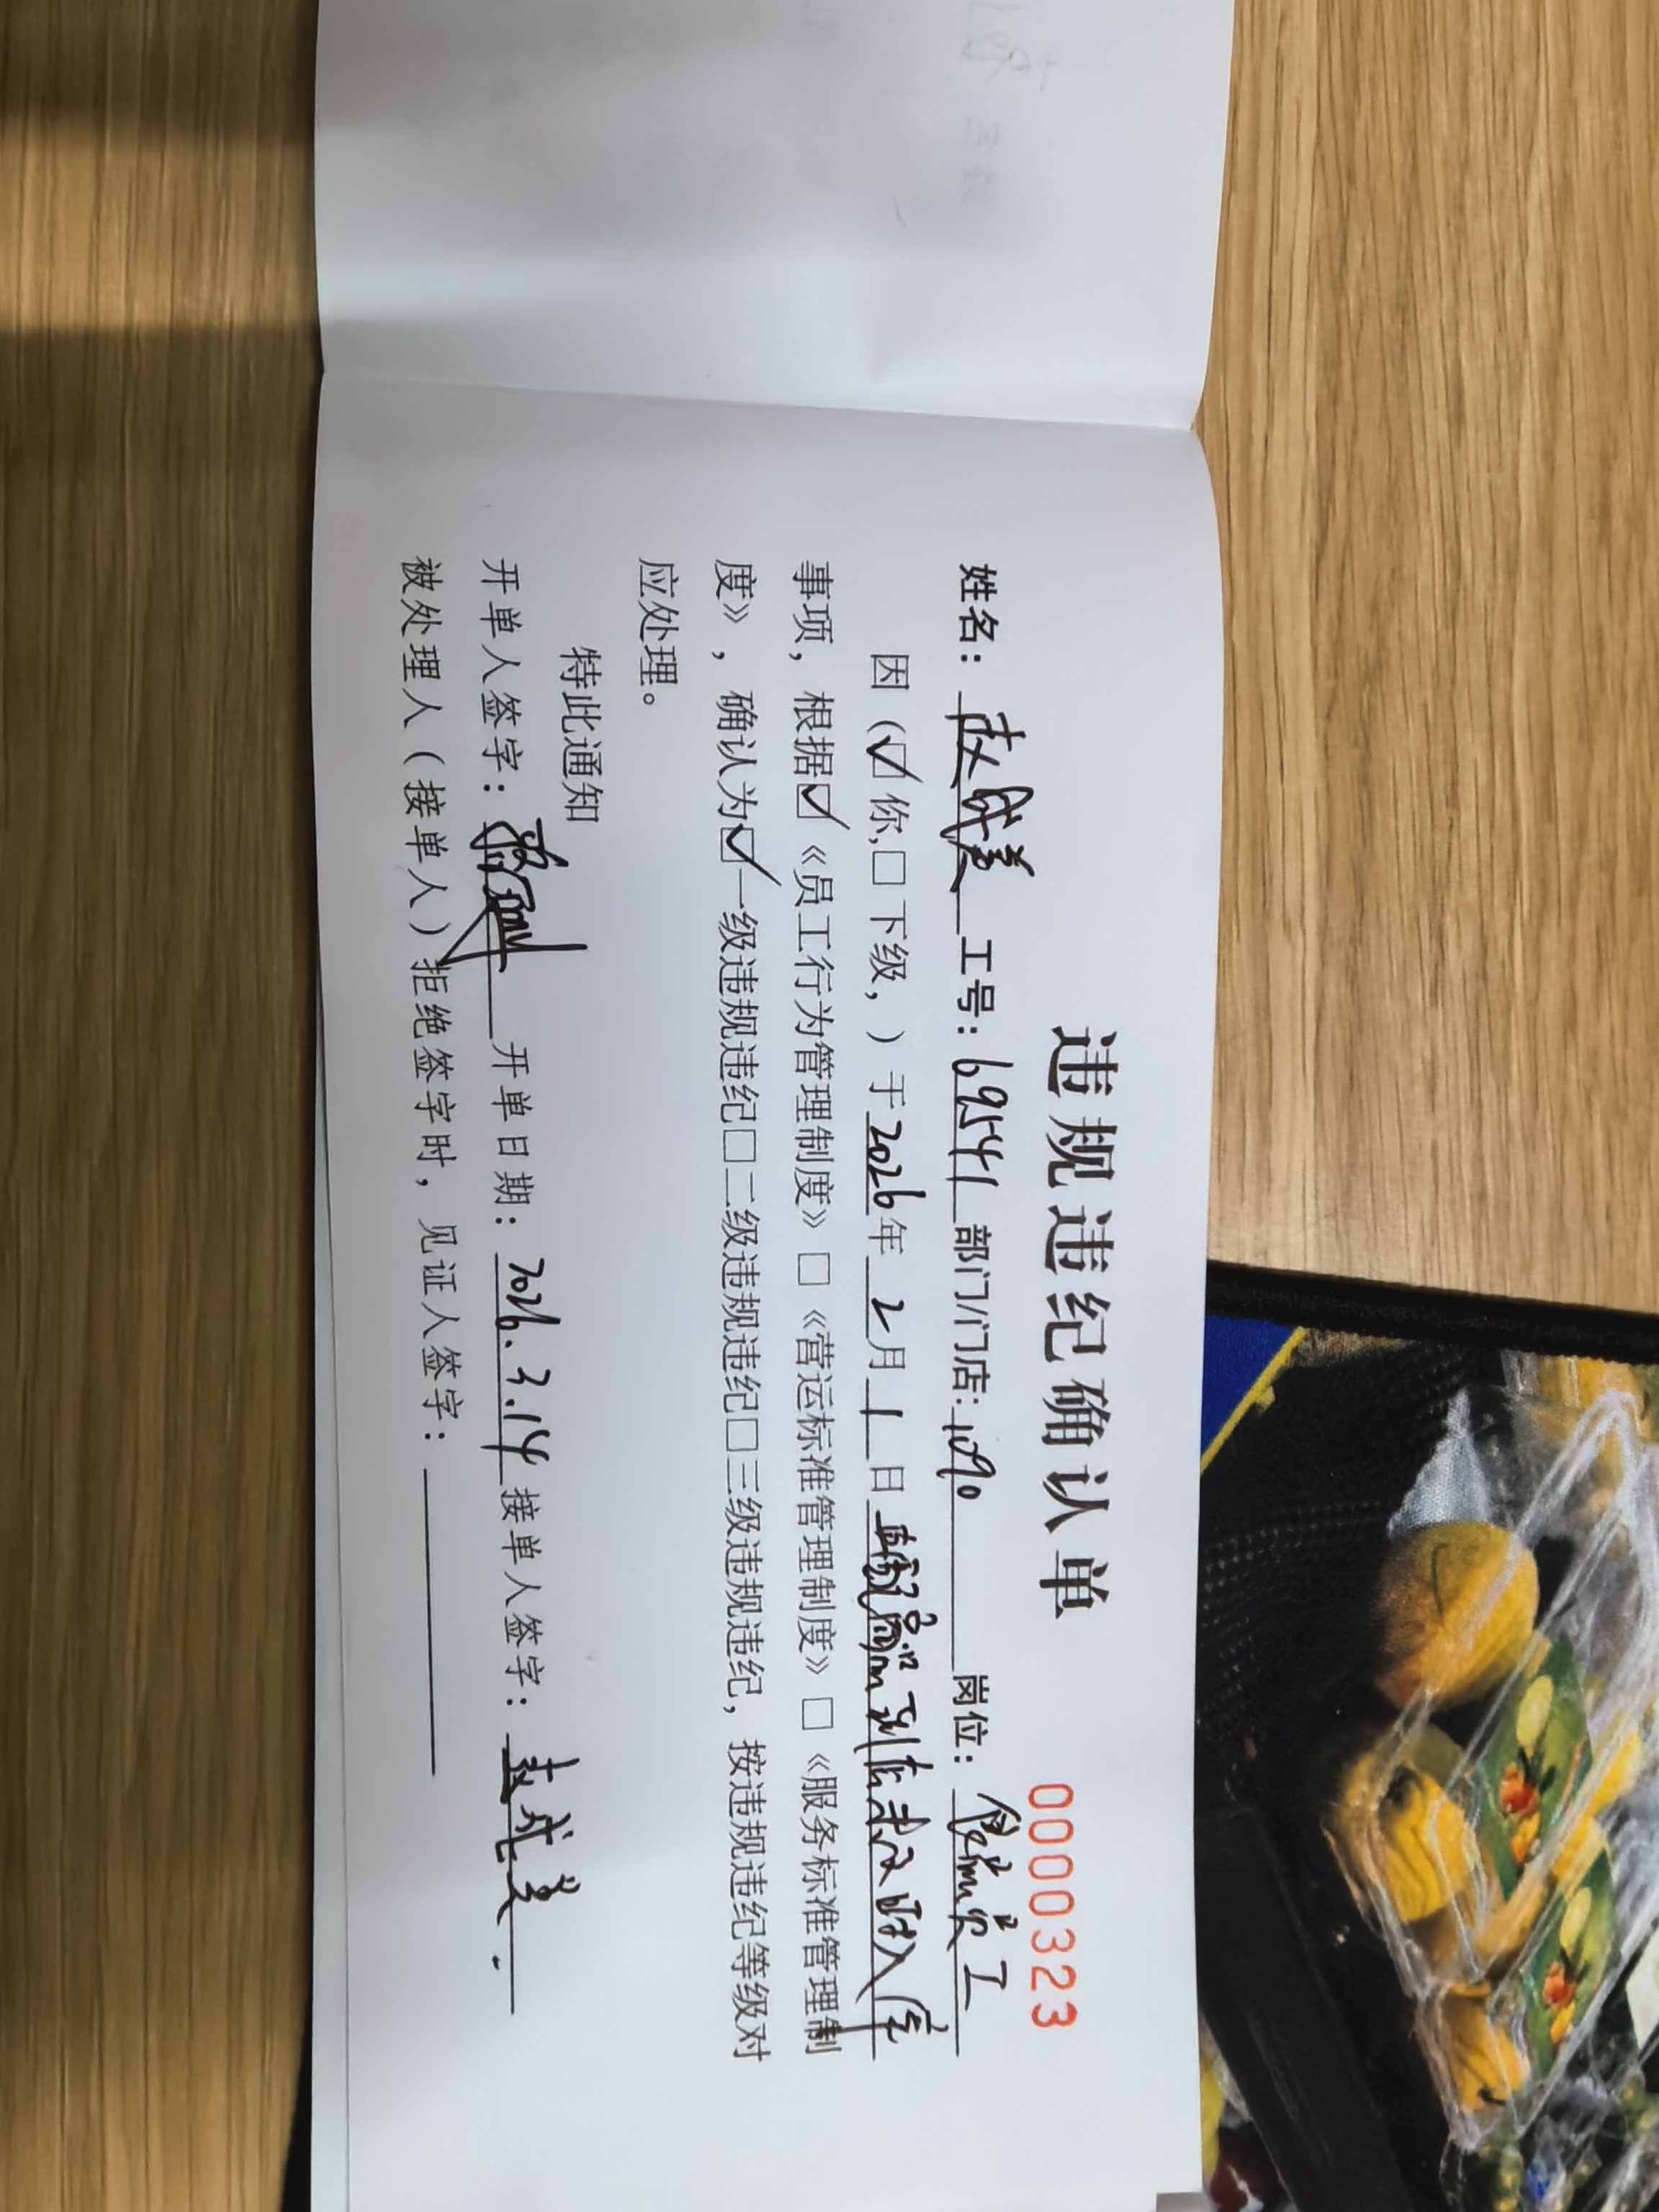 违规违纪确认单
0000323
姓名：赵成美 工号：69541 部门/门店：1090 岗位：员工
因（☑你,□下级，）于2026年2月1日 到店未及时入库
事项，根据☑《员工行为管理制度》□《营运标准管理制度》□《服务标准管理制
度》，确认为☑一级违规违纪□二级违规违纪□三级违规违纪，按违规违纪等级对
应处理。
特此通知
开单人签字： 开单日期：2026.3.14 接单人签字：赵成美
被处理人（接单人）拒绝签字时，见证人签字：